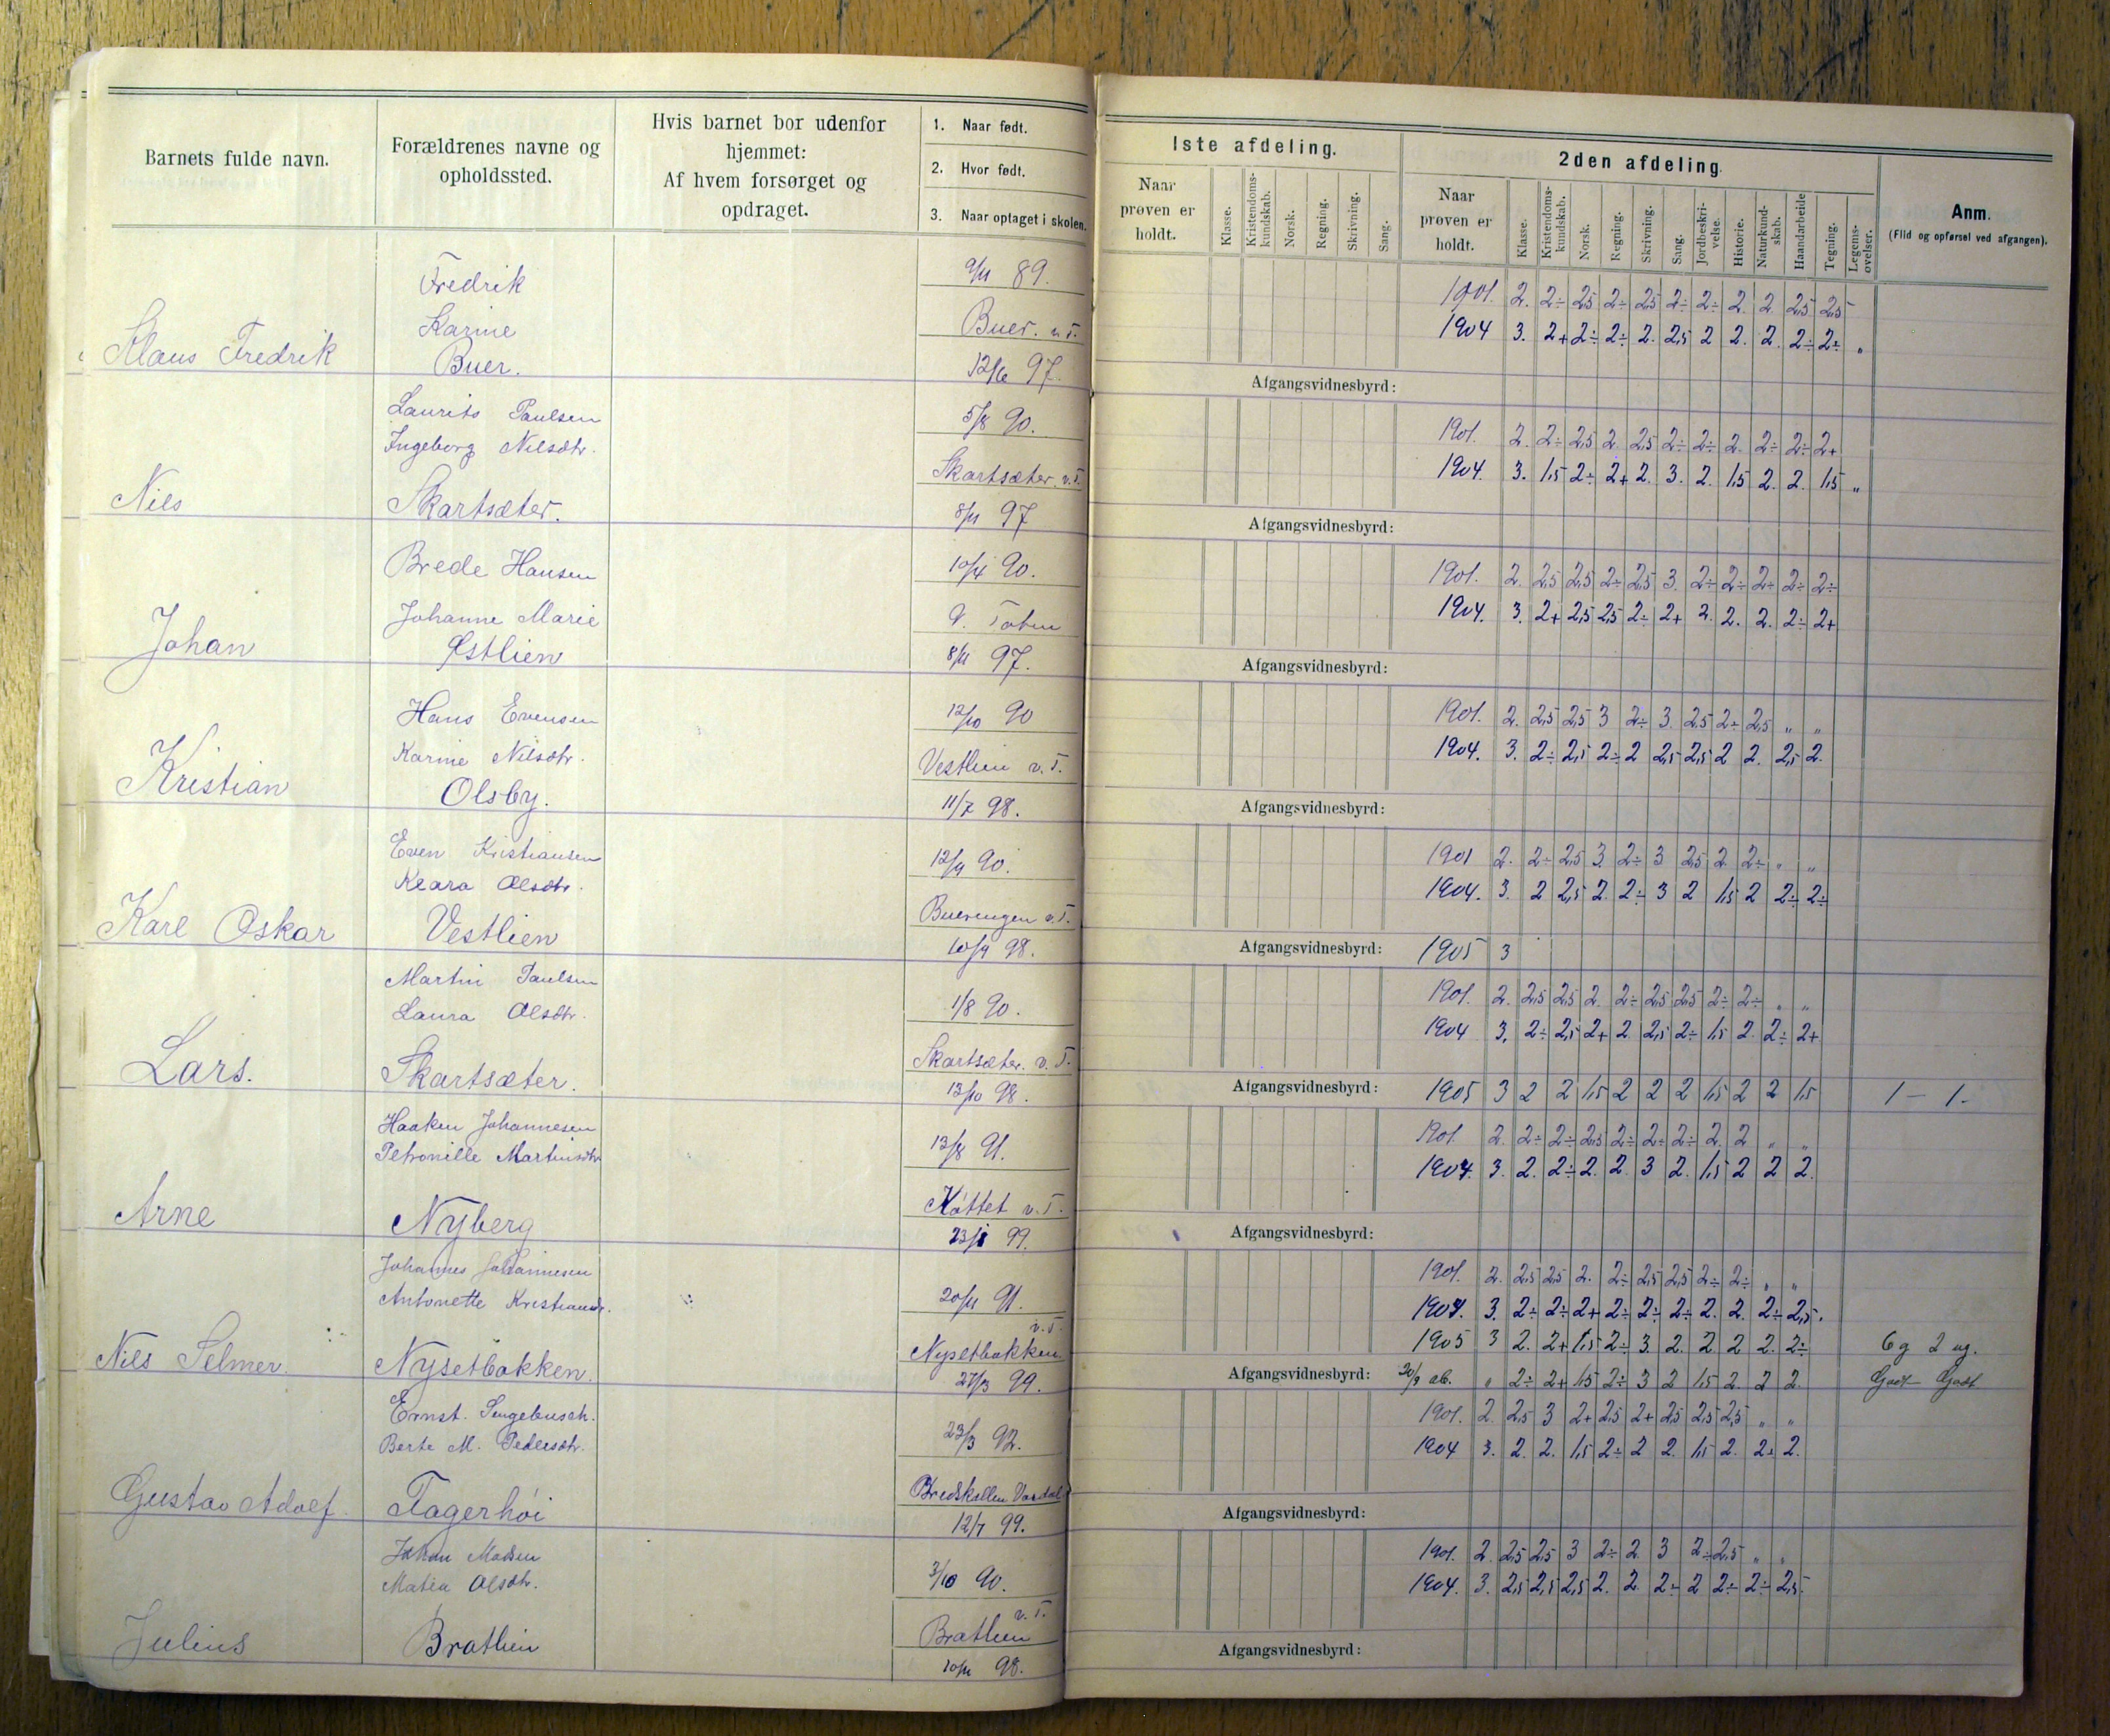 Barnets fulde navn.
Forældrenes navne og opholdssted.
Hvis barnet bor udenfor hjemmet:
Af hvem forsørget og opdraget.
1. Naar født.
2. Hvor født.
3. Naar optaget i skolen.
Iste afdeling.
Naar prøven er holdt.
Klasse.
Kristendoms-kundskab.
Norsk.
Regning.
Skrivning.
Sang.
2den afdeling.
Naar prøven er holdt.
Klasse.
Kristendoms-kundskab.
Norsk.
Regning.
Skrivning.
Sang.
Jordbeskri-velse.
Historie.
Naturkund-skab.
Haandarbeide
Tegning.
Legems-øvelser.
Anm.
(Flid og opførsel ved afgangen).
Klaus Fredrik
Fredrik
Karine
Buer.
9/11 89.
Buer. v. T.
12/6 97.
1901. 2. 2÷ 2,5 2÷ 2,5 2÷ 2÷ 2. 2. 2,5 2,5
1904 3. 2+ 2÷ 2÷ 2. 2,5 2 2. 2. 2÷ 2÷ „
Afgangsvidnesbyrd:
Nils
Laurits Paulsen
Ingeborg Nilsdtr.
Skartsæter.
5/8 90.
Skartsæter. v. T.
8/11 97
1901. 2. 2÷ 2,5 2. 2,5 2÷ 2÷ 2. 2÷ 2÷ 2+
1904. 3. 1,5 2÷ 2+ 2. 3. 2. 1,5 2. 2. 1,5 „
Afgangsvidnesbyrd:
Johan
Brede Hansen
Johanne Marie
Østlien
10/4 90.
V. Toten
8/11 97.
1901. 2. 2,5 2,5 2÷ 2,5 3. 2÷ 2÷ 2÷ 2÷ 2÷
1904. 3. 2+ 2,5 2,5 2÷ 2+ 2. 2. 2. 2÷ 2+
Afgangsvidnesbyrd:
Kristian
Hans Evensen
Karine Nilsdtr.
Olsby.
12/10 90
Vestlien v. T.
11/7 98.
1901. 2. 2,5 2,5 3 2÷ 3. 2,5 2÷ 2,5 „ „
1904. 3. 2÷ 2,5 2÷ 2 2,5 2,5 2 2. 2,5 2.
Afgangsvidnesbyrd:
Karl Oskar
Even Kristiansen
Klara Olsdtr.
Vestlien
12/9 90.
Buerengen v. T.
10/9 98.
1901 2. 2÷ 2,5 3. 2÷ 3 2,5 2. 2÷ „ „
1904. 3. 2 2,5 2. 2÷ 3 2 1,5 2 2÷ 2÷
Afgangsvidnesbyrd: 1905 3
Lars.
Martin Paulsen
Laura Olsdtr.
Skartsæter.
1/8 90.
Skartsæter. v. T.
13/10 98.
1901. 2. 2,5 2,5 2. 2÷ 2,5 2,5 2÷ 2÷ „ „
1904 3. 2÷ 2,5 2+ 2. 2,5 2÷ 1,5 2. 2÷ 2+
Afgangsvidnesbyrd: 1905 3 2 2 1,5 2 2 2 1,5 2 2 1,5 1 – 1.
Arne
Haaken Johannesen
Petronille Martinsdtr
Nyberg
13/8 91.
Kottet v. T.
23/8 99.
1901. 2. 2÷ 2÷ 2,5 2÷ 2÷ 2÷ 2. 2 „ „
1904. 3. 2. 2÷ 2. 2. 3 2. 1,5 2 2 2.
Afgangsvidnesbyrd:
Nils Selmer.
Johannes Johannesen
Antonette Kristiansdr.
Nysetbakken.
20/11 91.
v. T.
Nysetbakken
27/3 99.
1901. 2. 2,5 2,5 2. 2÷ 2,5 2,5 2÷ 2÷ „ „
1904. 3. 2÷ 2÷ 2+ 2÷ 2÷ 2÷ 2. 2. 2÷ 2,5.
1905 3 2. 2+ 1,5 2÷ 3. 2. 2. 2 2. 2÷ 6 g 2 ug.
Afgangsvidnesbyrd: „ 2÷ 2+ 1,5 2÷ 3 2 1,5 2. 2 2. Godt Godt
Gustav Adolf.
Ernst. Sengebusch.
Berte M. Pedersdtr.
Fagerhöi
23/3 92.
Bredskallen Vardal
12/7 99.
1901. 2. 2,5 3 2+ 2,5 2+ 2,5 2,5 2,5 „ „
1904 3. 2. 2. 1,5 2÷ 2 2. 1,5 2. 2÷ 2.
Afgangsvidnesbyrd:
Julius
Johan Madsen
Matea Olsdtr.
Bratlien
3/10 90.
v. T.
Bratlien
10/11 98.
1901. 2. 2,5 2,5 3 2÷ 2. 3 2÷ 2,5 „ „
1904. 3. 2,5 2,5 2,5 2. 2. 2÷ 2 2÷ 2÷ 2,5.
Afgangsvidnesbyrd: